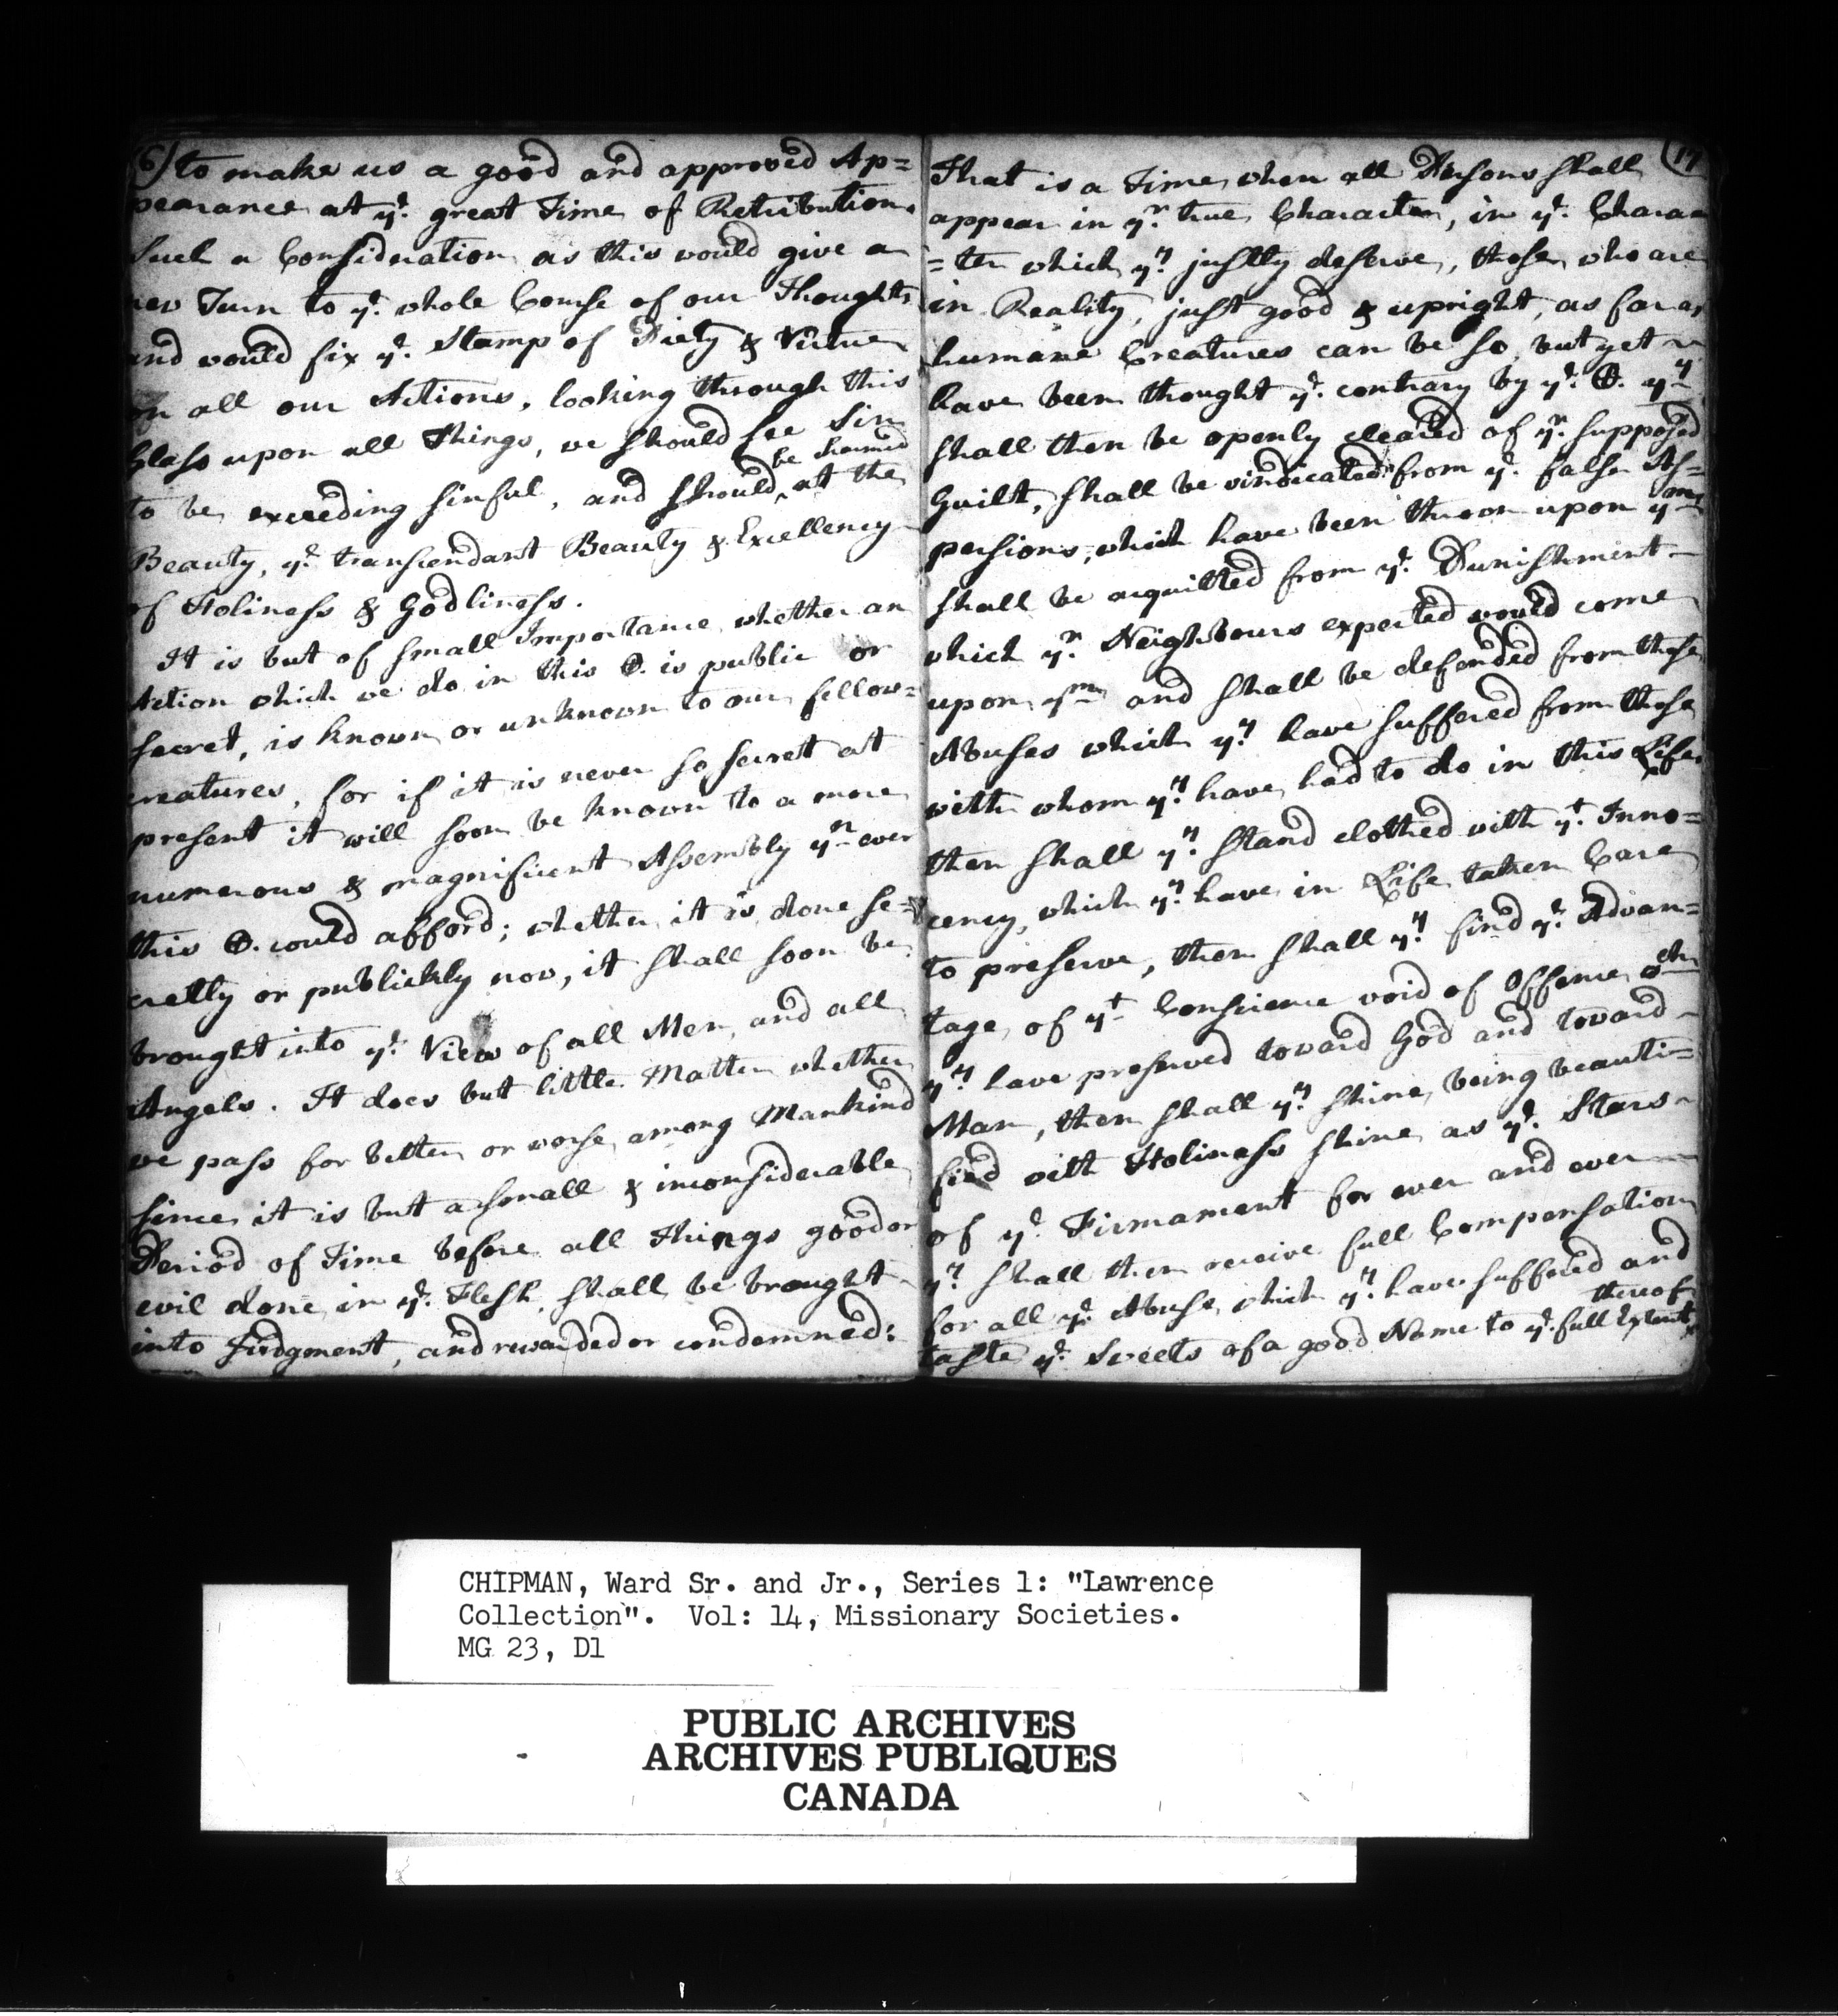 6) to make us a good and approved Ap=
pearance at yᵉ. great Time of Retribution.
Such a Consideration as this would give a
new Turn to yᵉ. whole Course of our Thoughts
and would fix yᵉ. Stamp of Piety & Virtue
on all our Actions, looking through this
Glass upon all Things, we should see Sin
to be exceeding sinful, and should ^be charmed at the
Beauty, yᵉ. transcendant Beauty & Excellency
of Holiness & Godliness.
It is but of small Importance whether an
Action which we do in this ⊕. is public or
secret, is known or unknown to our fellow=
creatures, for if it is never so secret at
present it will soon be known to a more
numerous & magnificent Assembly yⁿ ever
this ⊕. could afford; whether it is done se=
cretly or publickly now, it shall soon be
brought into yᵉ. View of all Men, and all
Angels. It does but little Matter whether
we pass for better or worse among Mankind
since it is but a small & inconsiderable
Period of Time before all Things good or
evil done in yᵉ. Flesh, shall be brought
into Judgment, and rewarded or condemned:
17
That is a Time when all Persons shall
appear in yʳ. true Character, in yᵉ. Charac
=ter which yʸ. justly deserve, those who are
in Reality, just good & upright, as far as
humane Creatures can be so, but yet
have been thought yᵉ. contrary by yᵉ. ⊕. yʸ
shall then be openly cleared of yʳ. supposed
Guilt, shall be vindicated from yᵉ. false As=
persions, which have been thrown upon yᵐ
shall be acquitted from yᵉ. Punishment
which yʳ. Neighbours expected would come
upon yᵐ and shall be defended from those
Abuses which yʸ. have suffered from those
with whom yʸ. have had to do in this Life.
then shall yʸ. stand clothed with yᵗ. Inno=
cency, which yʸ. have in Life taken Care
to preserve, then shall yʸ. find yᵉ. Advan=
tage of yᵗ Conscience void of Offence wᶜʰ
yʸ. have preserved toward God and toward
Man, then shall yʸ. shine, being beauti=
fied with Holiness shine as yᵉ. Stars
of yᵉ. Firmament for ever and ever
yʸ. shall then receive full Compensation
for all yᵉ. Abuse which yʸ. have suffered and
taste yᵉ. Sweets of a good Name to yᵉ. full Extent thereof
CHIPMAN, Ward Sr. and Jr., Series 1: "Lawrence
Collection". Vol: 14, Missionary Societies.
MG 23, D1
PUBLIC ARCHIVES
ARCHIVES PUBLIQUES
CANADA